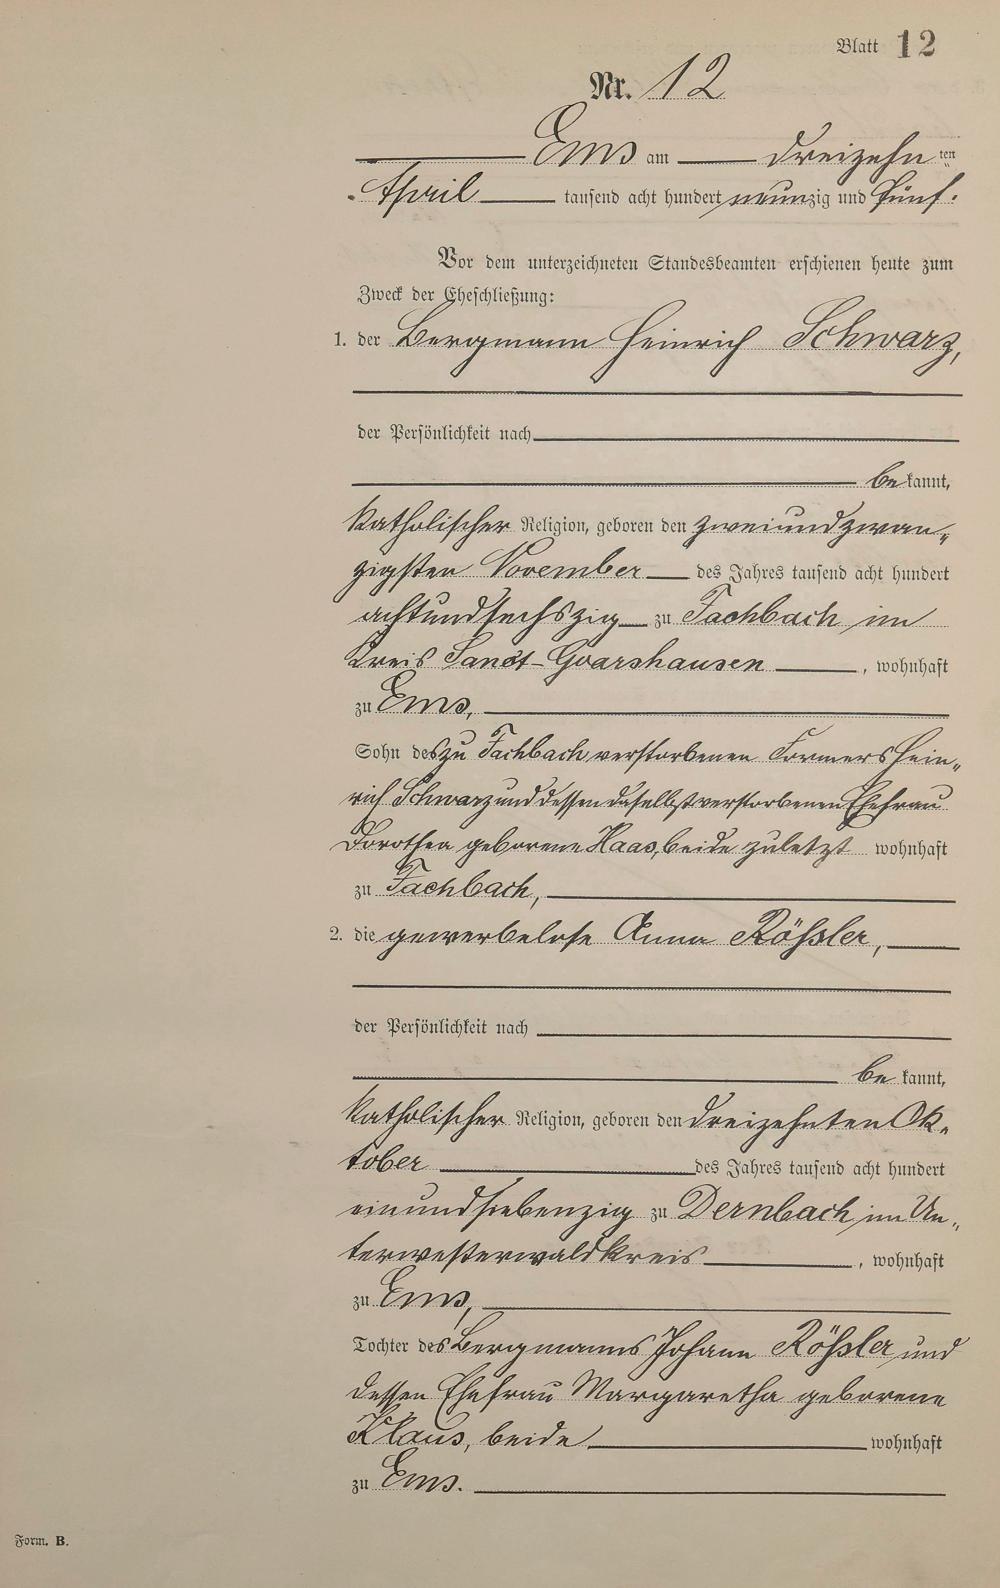 Blatt 12
Nr. 12
Ems am dreizehn ten
April tausend acht hundert neunzig und fünf.
Vor dem unterzeichneten Standesbeamten erschienen heute zum
Zweck der Eheschließung:
1. der Bergmann Heinrich Schwarz,
der Persönlichkeit nach
be kannt,
katholischer Religion, geboren den zweiundzwan-
zigsten November des Jahres tausend acht hundert
achtundsechszig zu Fachbach im
Kreis Sanct-Goarshausen, wohnhaft
zu Ems,
Sohn des zu Fachbach verstorbenen Formers Hein-
rich Schwarz und dessen daselbst verstorbenen Ehefrau
Dorothea geborene Haas, beide zuletzt wohnhaft
zu Fachbach,
2. die gewerbelose Anna Rößler,
der Persönlichkeit nach
be kannt,
katholischer Religion, geboren den dreizehnten Ok-
tober des Jahres tausend acht hundert
einundsiebenzig zu Dernbach im Un-
terwesterwaldkreis, wohnhaft
zu Ems,
Tochter des Bergmanns Johann Rößler und
dessen Ehefrau Margaretha geborene
Klaus, beide wohnhaft
zu Ems.
Form. B.